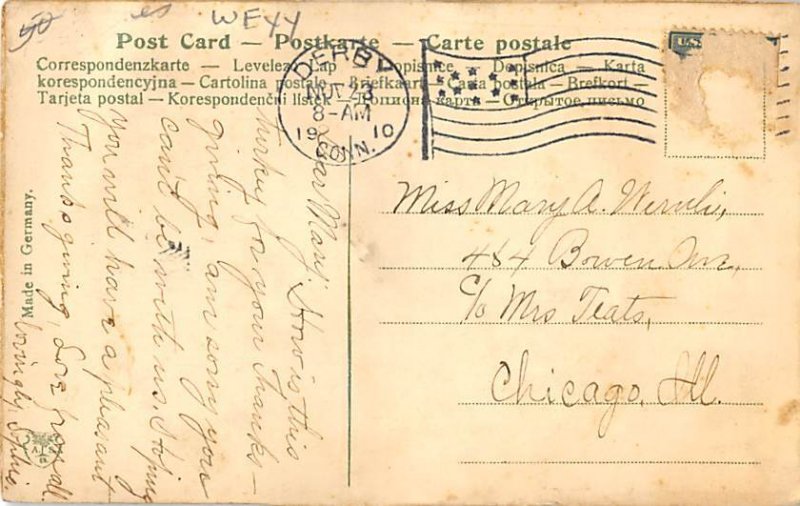 es WE44
Post Card — Postkarte — Carte postale
Correspondenzkarte — Levelező-Lap — Dopisnice — Dopisnica — Karta
korespondencyjna — Cartolina postale — Briefkaart — Carta postala — Brefkort —
Tarjeta postal — Korespondenčni listek — Открытое письмо
DERBY
NOV 23
8-AM
1910
CONN.
Dear Mary, How is this
turkey for your Thanks-
giving, am sorry you
can't be with us. Hoping
you will have a pleasant
Thanksgiving, Love from all.
lovingly
Made in Germany.
Miss Mary A. Wernli,
484 Bowen Ave,
c/o Mrs Teats,
Chicago, Ill.